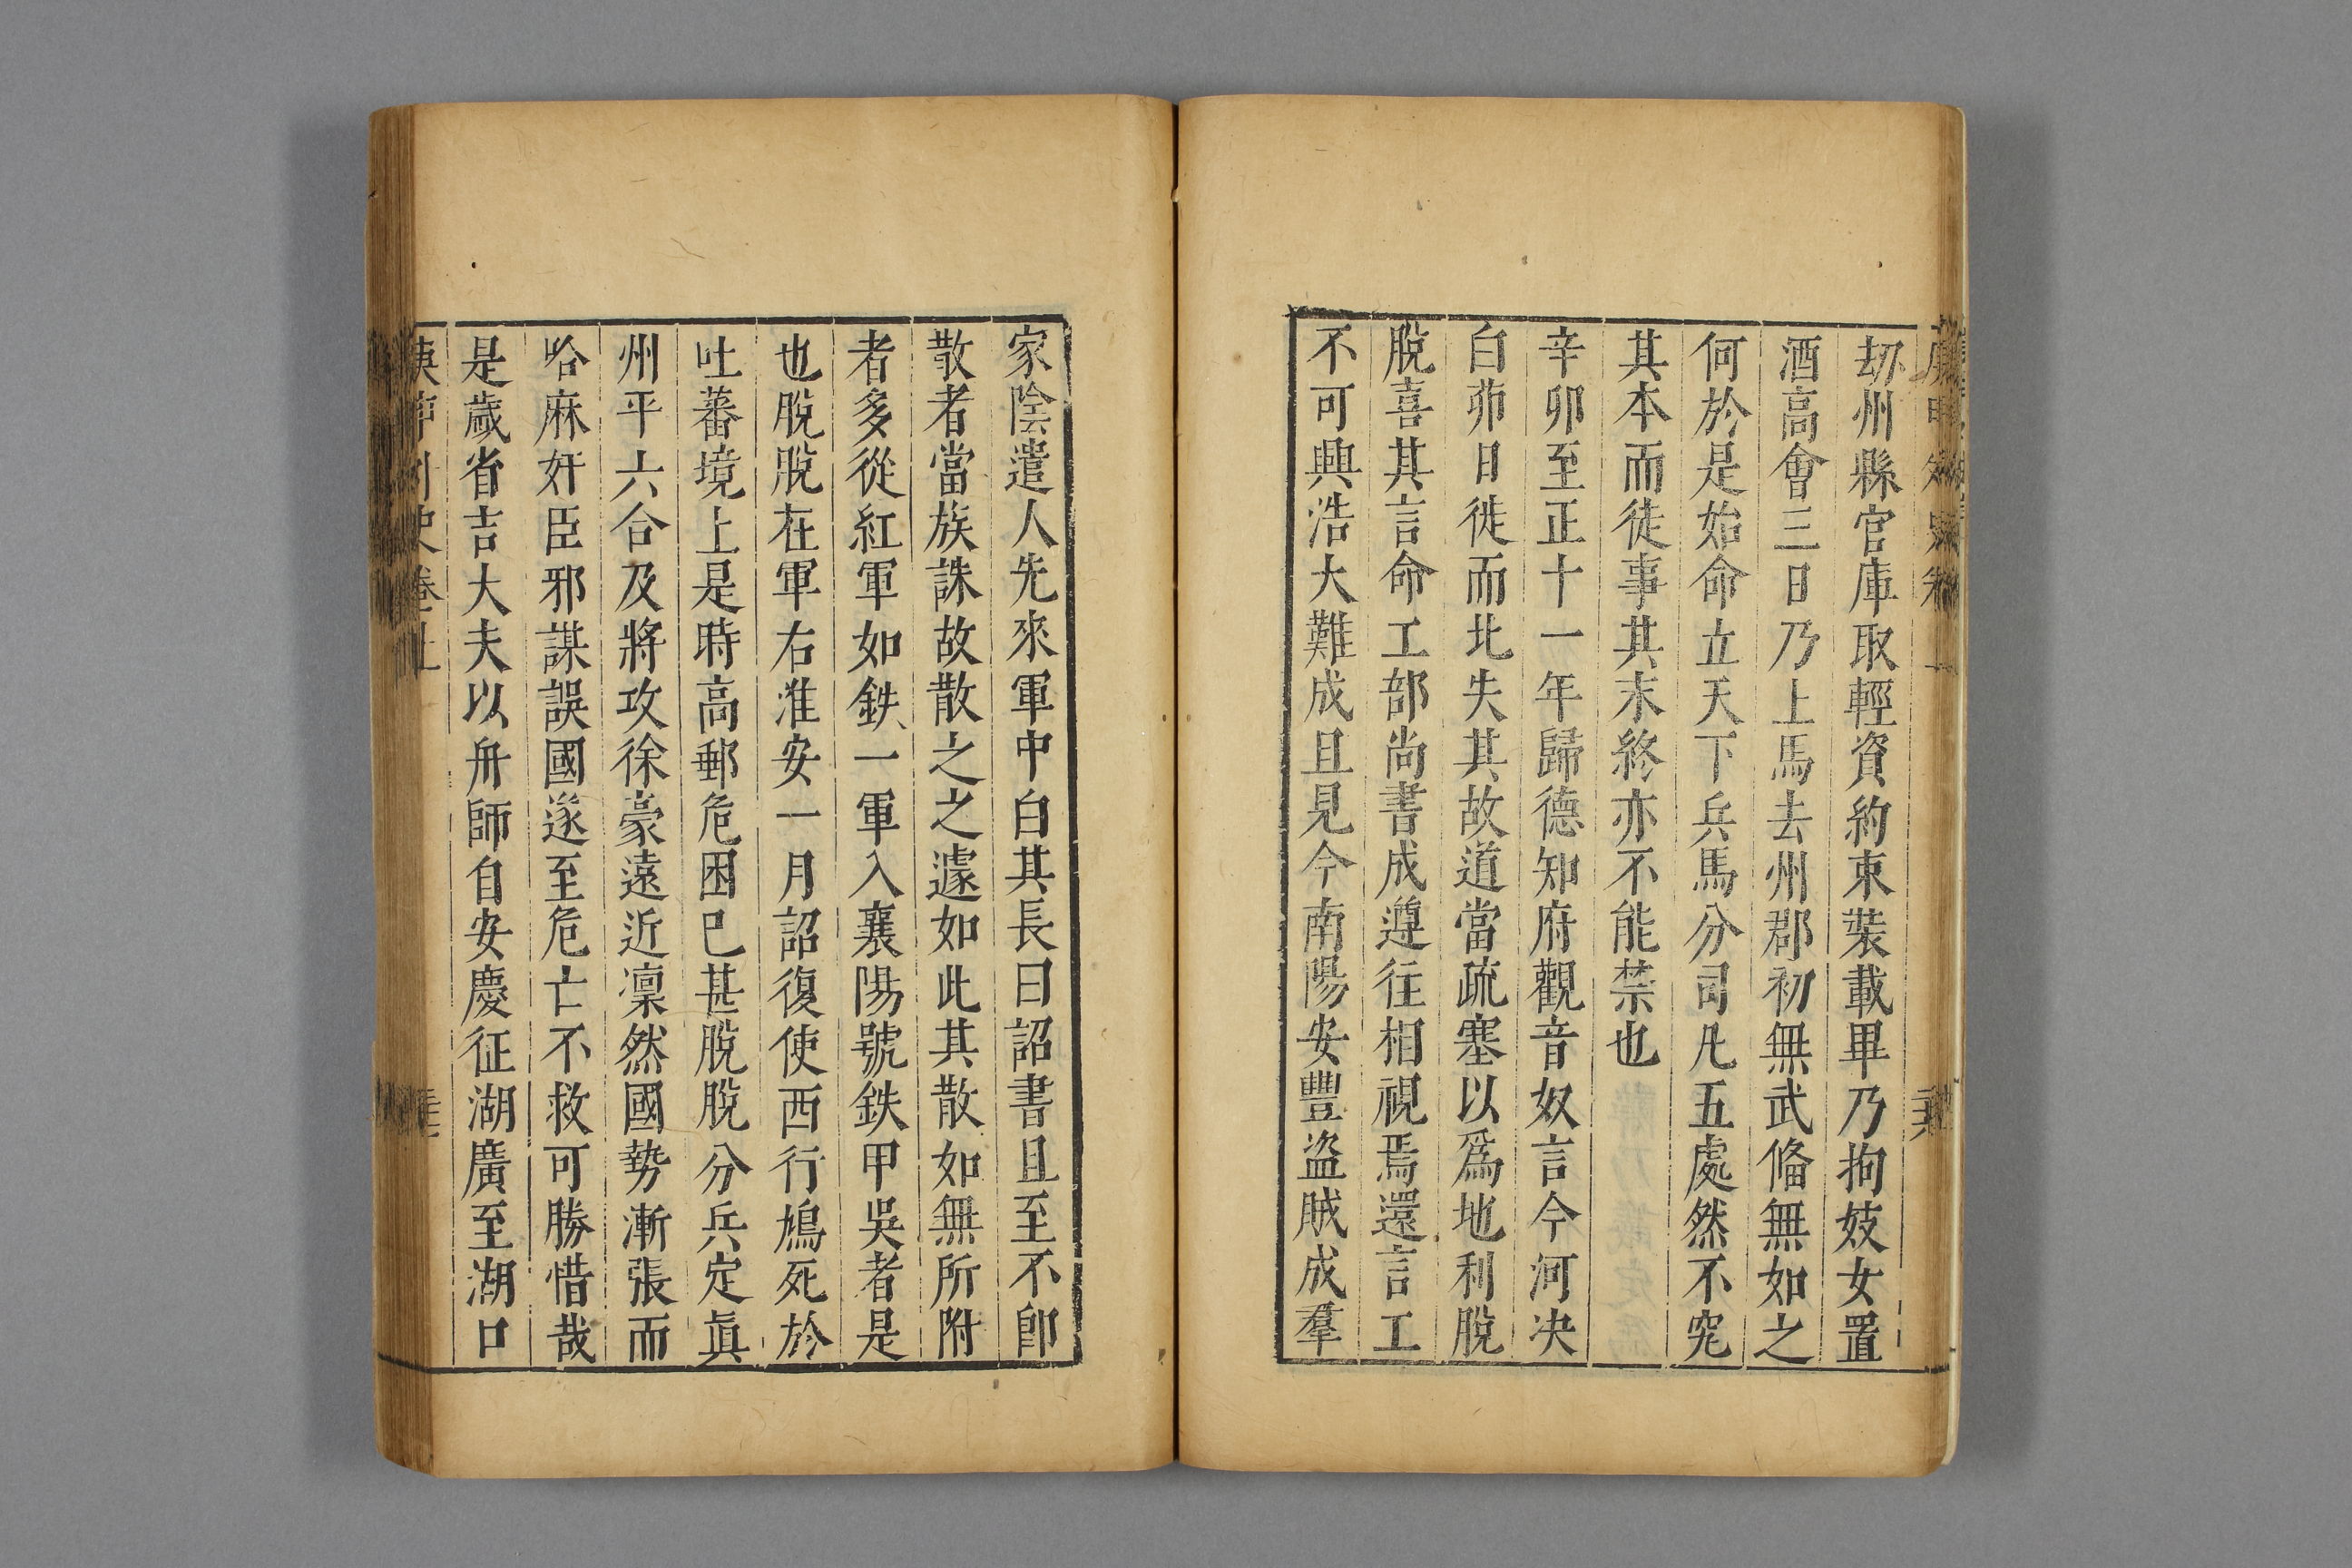 劫州縣官庫取輕資約束裝載畢乃拘妓女置
酒高會三日乃上馬去州郡初無武俻無如之
何於是始命立天下兵馬分司凡五處然不究
其本而徒事其末終亦不能禁也
辛卯至正十一年歸德知府觀音奴言今河决
白茆日徙而北失其故道當疏塞以爲地利脫
脫喜其言命工部尚書成遵往相視焉還言工
不可興浩大難成且見今南陽安豐盜賊成羣
家陰遣人先來軍中白其長曰詔書且至不卽
散者當族誅故散之之遽如此其散如無所附
者多從紅軍如鉄一軍入襄陽號鉄甲吳者是
也脫脫在軍右淮安一月詔復使西行鴆死於
吐蕃境上是時高郵危困巳甚脫脫分兵定眞
州平六合及將攻徐豪遠近凜然國勢漸張而
哈麻奸臣邪謀誤國遂至危亡不救可勝惜哉
是歲省吉大夫以舟師自安慶征湖廣至湖口
庚申外史卷上